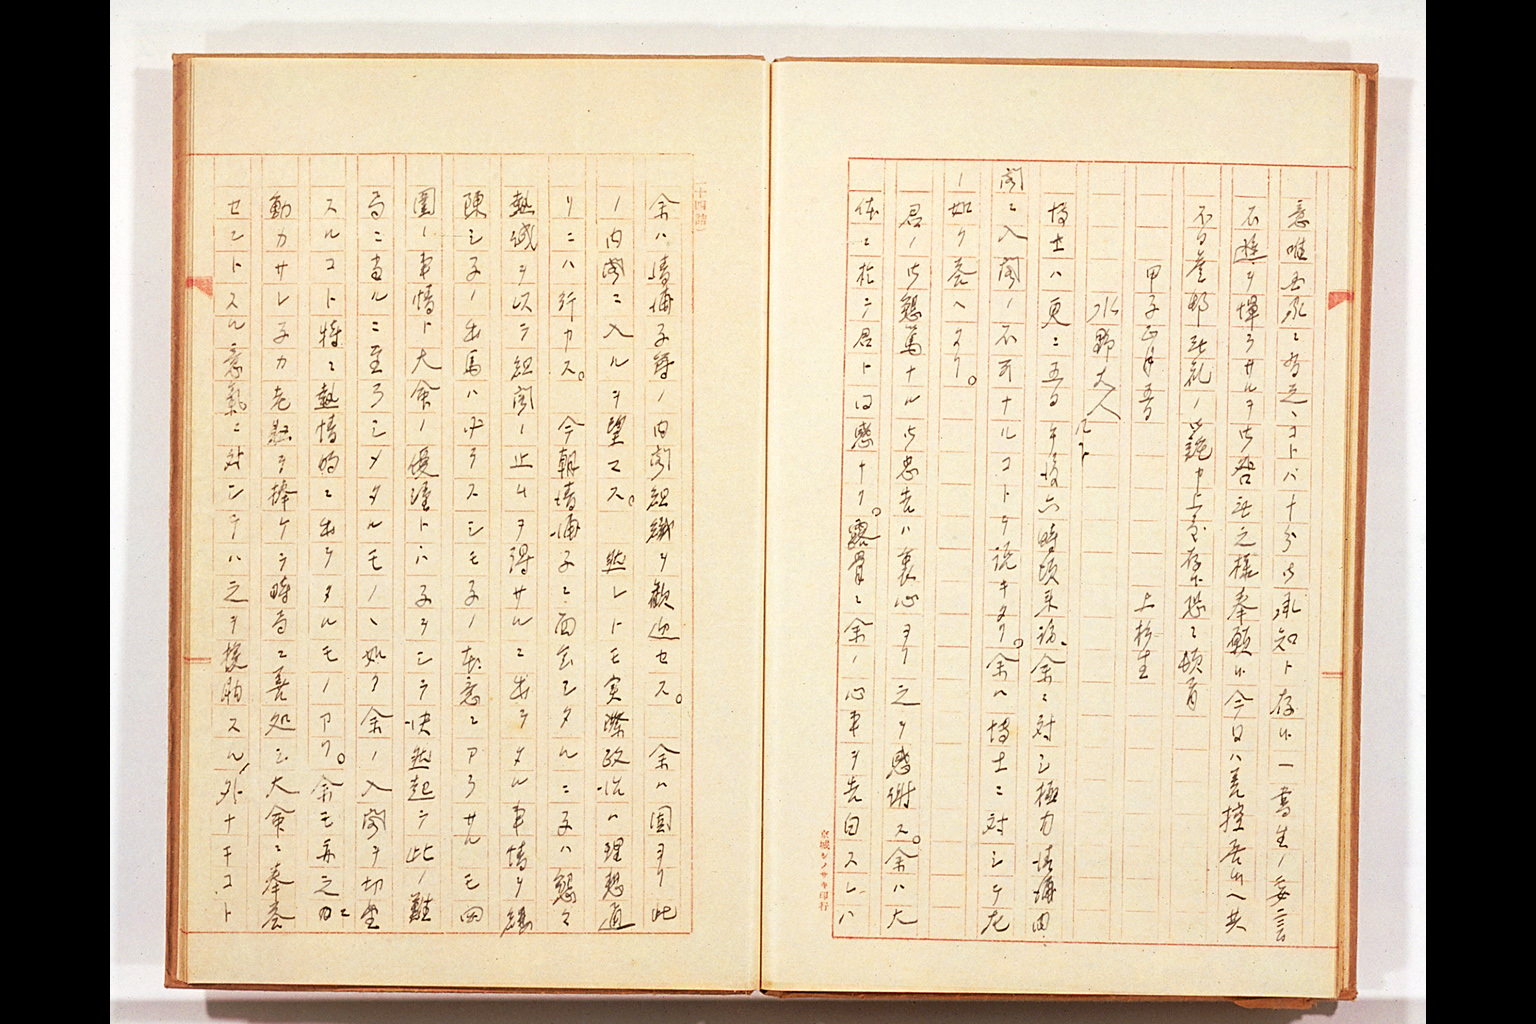 意唯
不遜ヲ憚ラサルヲ 之様奉願候 今日ハ差控 候ヘ共
不日
甲子正月五日 上杉生
水野大人
博士ハ更ニ五日午後六時頃来訪、余ニ対シ極力清浦内
閣ニ入閣ノ不可ナルコトヲ説キタリ。余ハ博士ニ対シテ左
ノ如ク答ヘタリ。
君ノ御懇篤ナル御忠告ハ衷心ヨリ之ヲ感謝ス。余ハ大
体ニ於テ君ト同感ナリ。露骨ニ余ノ心事ヲ告白スレハ
京城シノサキ印行
余ハ清浦子爵ノ内閣組織ヲ歓迎セス。 余ハ固ヨリ此
ノ内閣ニ入ルヲ望マス。 然レトモ実際政治ハ理想通
リニハ行カス。 今朝清浦子ニ面会シタルニ子ハ懇々
熱誠ヲ以テ組閣ノ止ムヲ得サルニ出テタル事情ヲ縷
陳シ子ノ出馬ハ必スシモ子ノ本意ニアラサルモ四
囲ノ事情ト大命ノ優渥トハ子ヲシテ決然起テ此ノ難
局ニ当ルニ至ラシメタルモノヽ如ク余ノ入閣ヲ切望
スルコト特ニ熱情的ニ出タルモノアリ。余モ亦之カ為ニ
動カサレ子カ老躯ヲ捧ケテ時局ニ善処シ大命ニ奉答
セントスル意気ニ対シテハ之ヲ援助スルノ外ナキコト